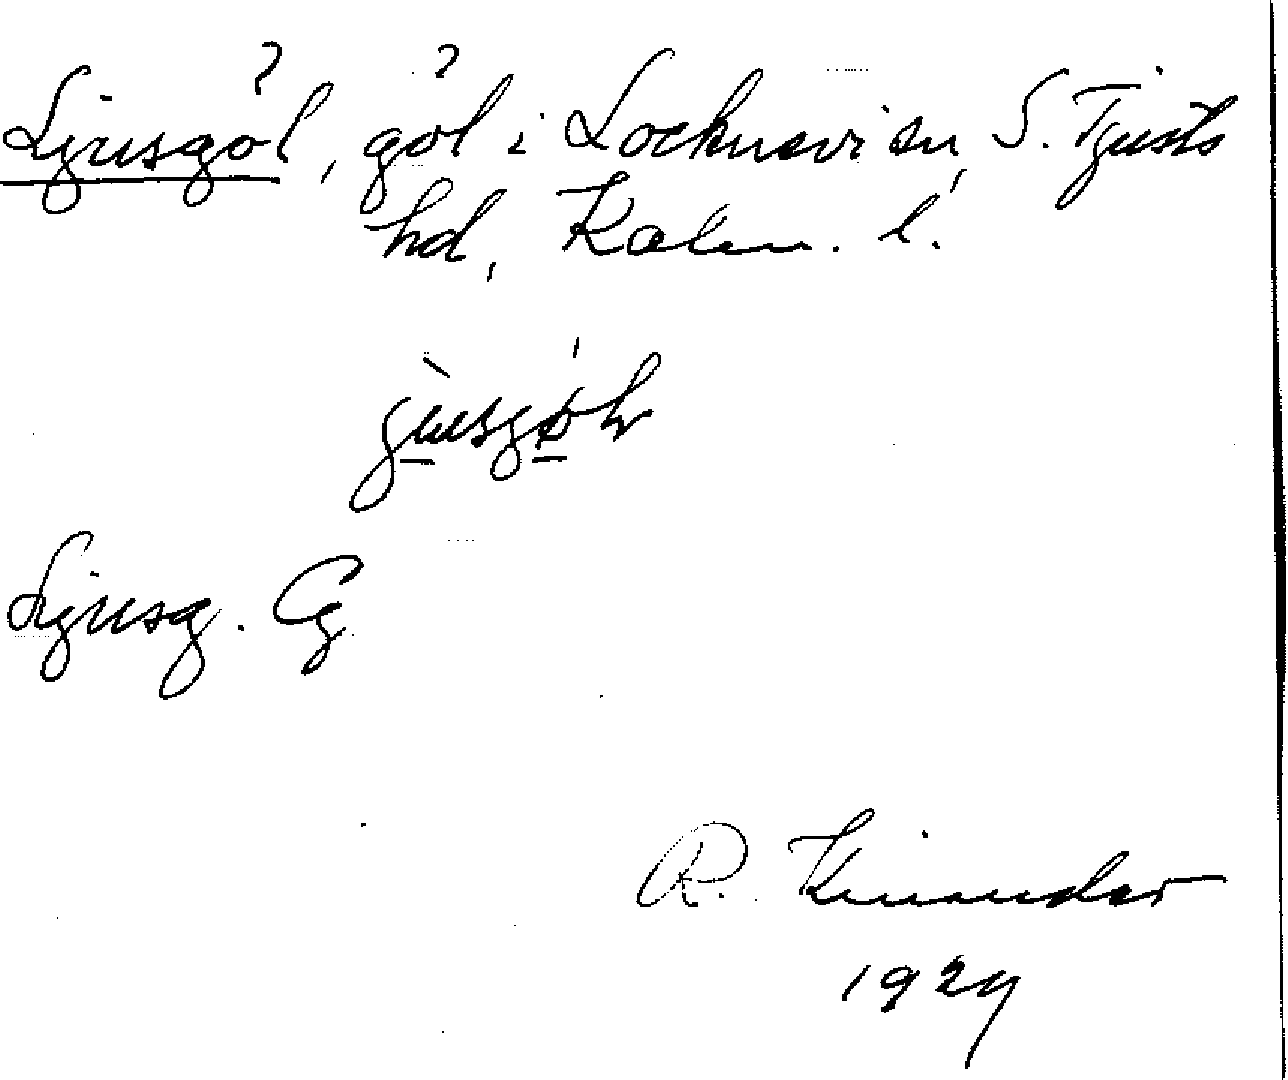 Ljusgöl, göl i Locknevi sn, S. Tjusts
hd, Kalm. l.
Ljusg. Cg
R. Kinander
1929